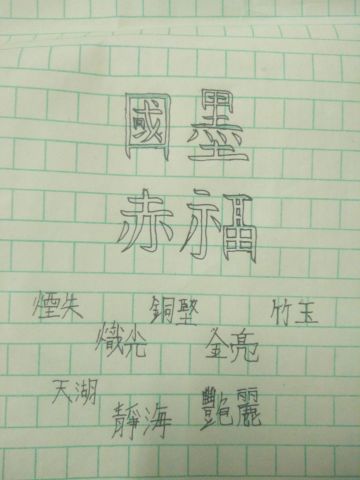 國墨
赤福
煙失 銅堅 竹玉
熾光 金亮
天湖 艷麗
靜海